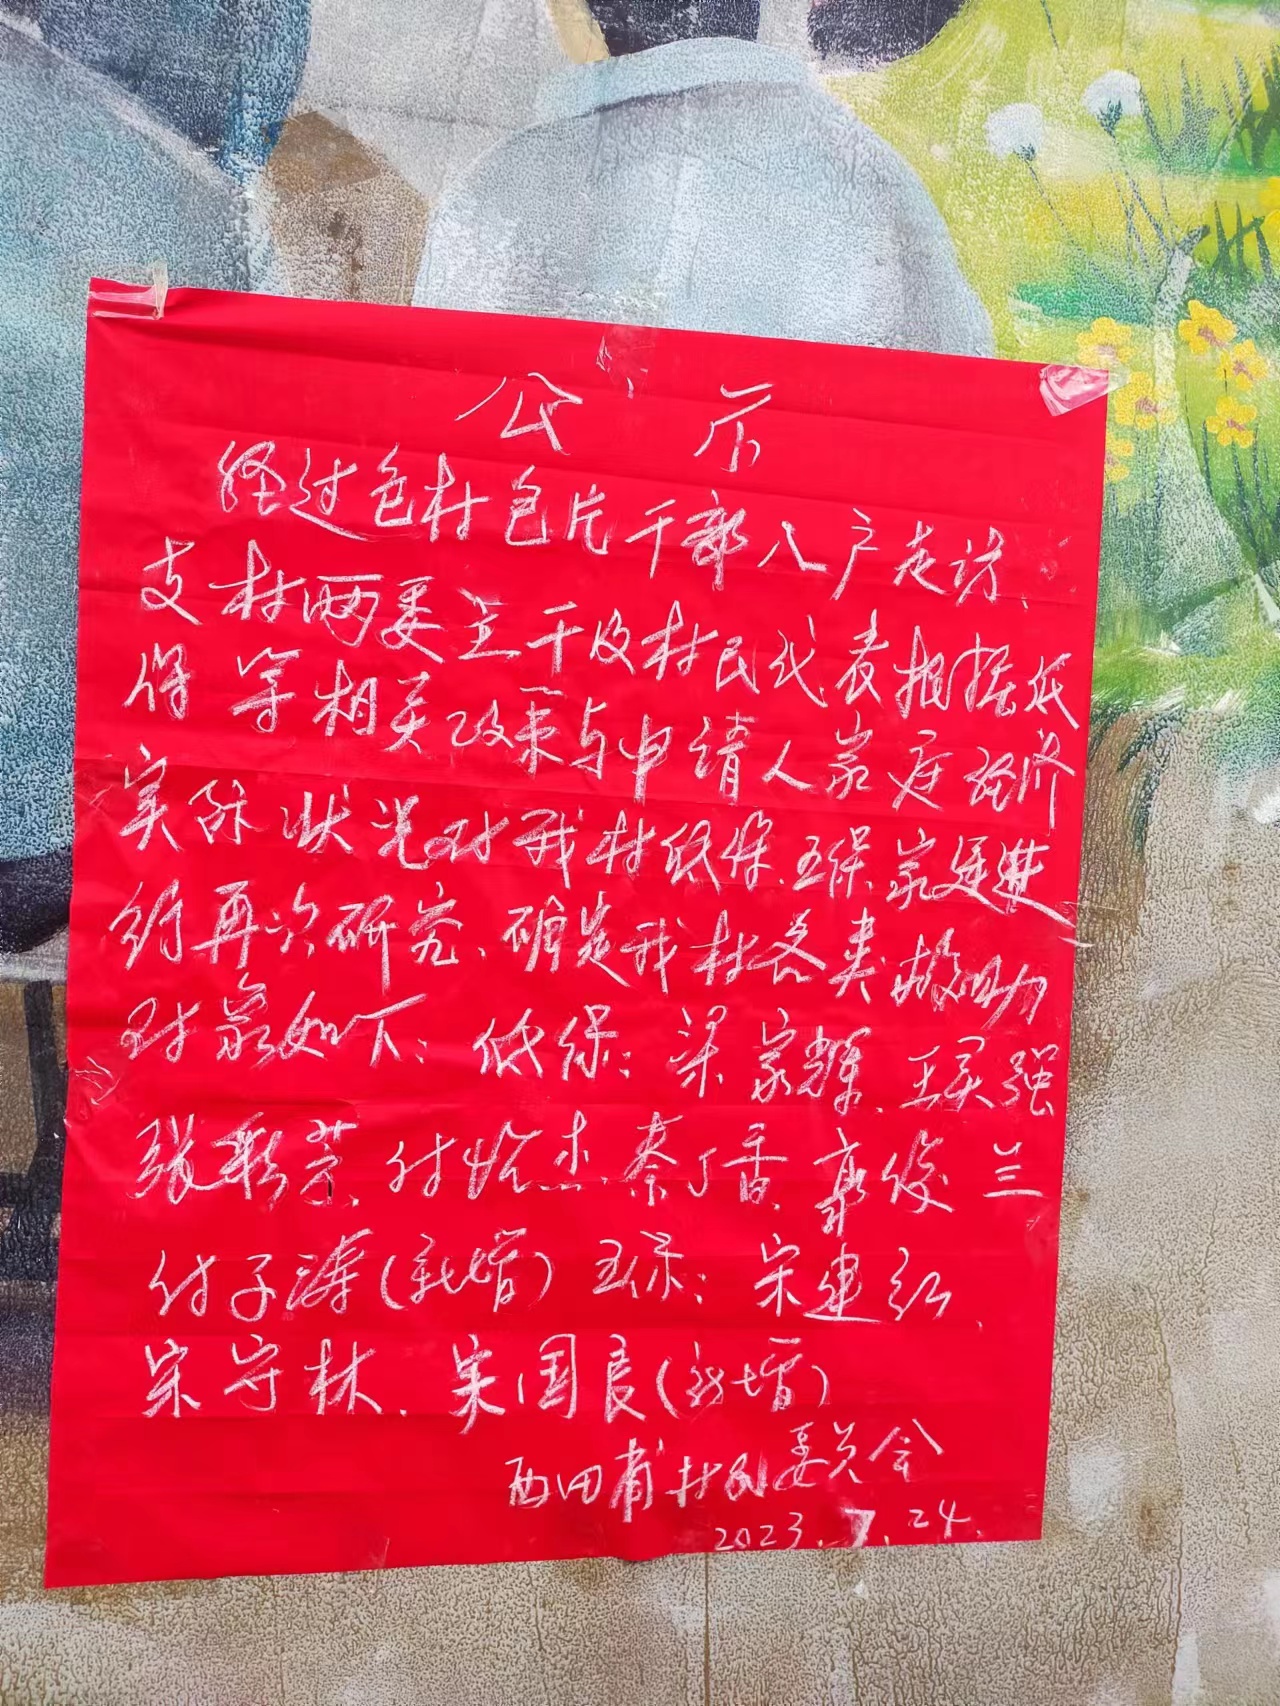 公示
经过包村包片干部入户走访、
支村两委主干及村民代表根据低
保等相关政策与申请人家庭经济
实际状况对我村低保、五保家庭进
行再次研究、确定我村各类救助
对象如下：低保：梁家辉、王灵强
张彩芸、付 杰、秦 香、郭俊兰
付子涛(新增) 五保：宋建红、
宋守林、宋国良(新增)
西田 村民委员会
2023.7.24.